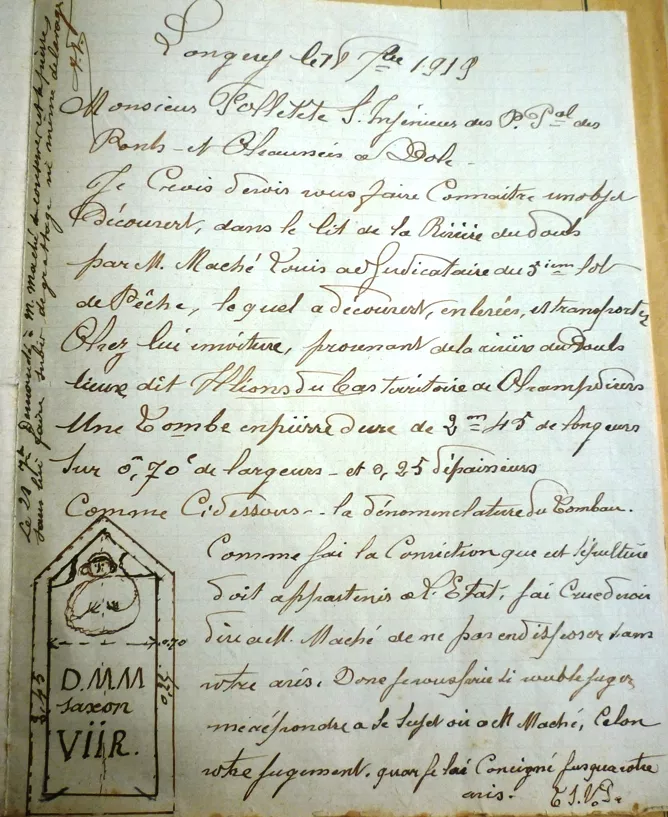 Longevy le 18 7bre 1913
Monsieur Folletete S. Injénieur des P. Pal des
Ponts - et Chaussées a Dole -
Je Crois devoir vous faire Connaitre un objet
Découvert, dans le lit de la Rivière du doubs
par M. Maché Louis adjudicataire du 5ième lot
de Pêche, lequel a découvert, en levées, et transportez
Chez lui en voiture, provenant de la rivière du Doubs
lieux dit du bas territoire de Champdivers
Une Tombe en pierre dure de 2m 45 de longeurs
Sur 0m,70c de largeurs - et 0,25 d'épaisseurs
Comme Cidessous - la dénomenclature du Tombau.
Comme j'ai la Conviction que cet sépulture
doit appartenir a l'Etat, j'ai Crue devoir
dire a M. Maché de ne pas en disposer sans
votre avis. Donc je vous prie de vouloir juger
me répondre a se Sujet ou a M Maché, Celon
votre jugement. quar je lai Consigné jusqua votre
avis - T.S.V.P.
Le 21 7bre Demandé à M. Maché de conserver cette pierre
sans lui faire subir de grattage ni même de lavage
0,70
2,45
0,25
D.MM
saxon
VIIR.